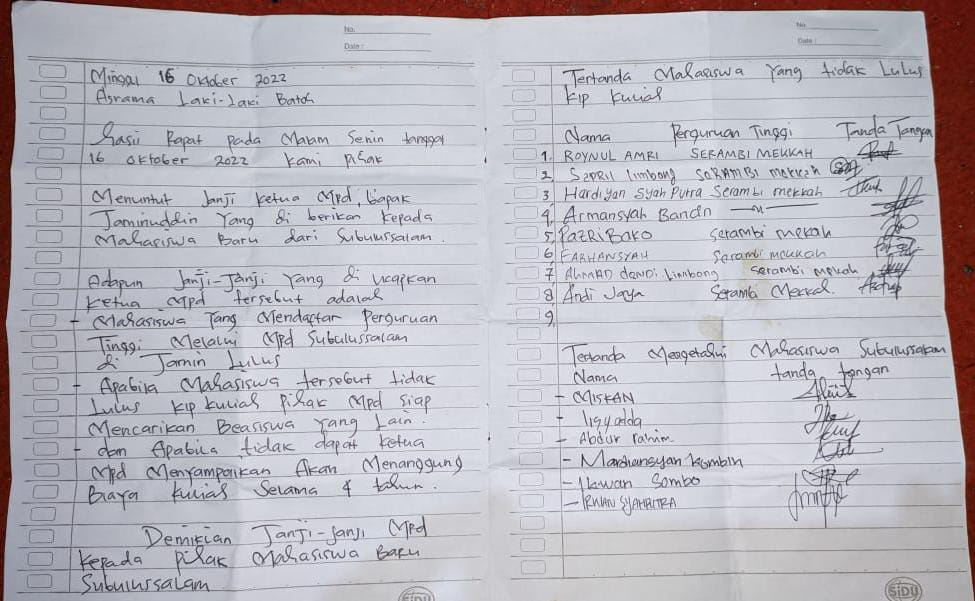 No.
Date :
Minggu 16 Oktober 2022
Asrama Laki-Laki Batoh
Hasil Rapat pada Malam Senin tanggal
16 Oktober 2022 Kami pihak
Menuntut Janji Ketua Mpd, bapak
Jaminuddin Yang di berikan Kepada
Mahasiswa Baru dari Subulussalam.
Adapun Janji-Janji Yang di ucapkan
Ketua Mpd tersebut adalah
- Mahasiswa Yang Mendaftar Perguruan
Tinggi Melalui Mpd Subulussalam
di Jamin Lulus
- Apabila Mahasiswa tersebut tidak
Lulus Kip Kuliah Pihak Mpd Siap
Mencarikan Beasiswa Yang Lain.
- dan Apabila tidak dapat Ketua
Mpd Menyampaikan Akan Menanggung
Biaya Kuliah Selama 4 tahun.
Demikian Janji-Janji Mpd
Kepada Pihak Mahasiswa Baru
Subulussalam
SiDU
No.
Date :
Tertanda Mahasiswa Yang tidak Lulus
Kip Kuliah
Nama Perguruan Tinggi Tanda Tangan
1. ROYNUL AMRI SERAMBI MEKKAH
2. SAPRIL limbong SERAMBI mekkah
3 Hardiyan Syah Putra Serambi mekkah
4. Armansyah Bancin —〃—
5. PAZRI BAKO serambi mekah
6 FARHANSYAH Serambi mekkah
7 AHMAD DANDI Limbong serambi mekah
8 Andi Jaya Serambi Mekkah.
9.
Tertanda Mengetahui Mahasiswa Subulussalam
Nama tanda tangan
- MISKAN
- Abdur rahim.
- Mardiansyah Kombih
- Ikwan Sambo
- IRWAN SYAHPITRA
SiDU